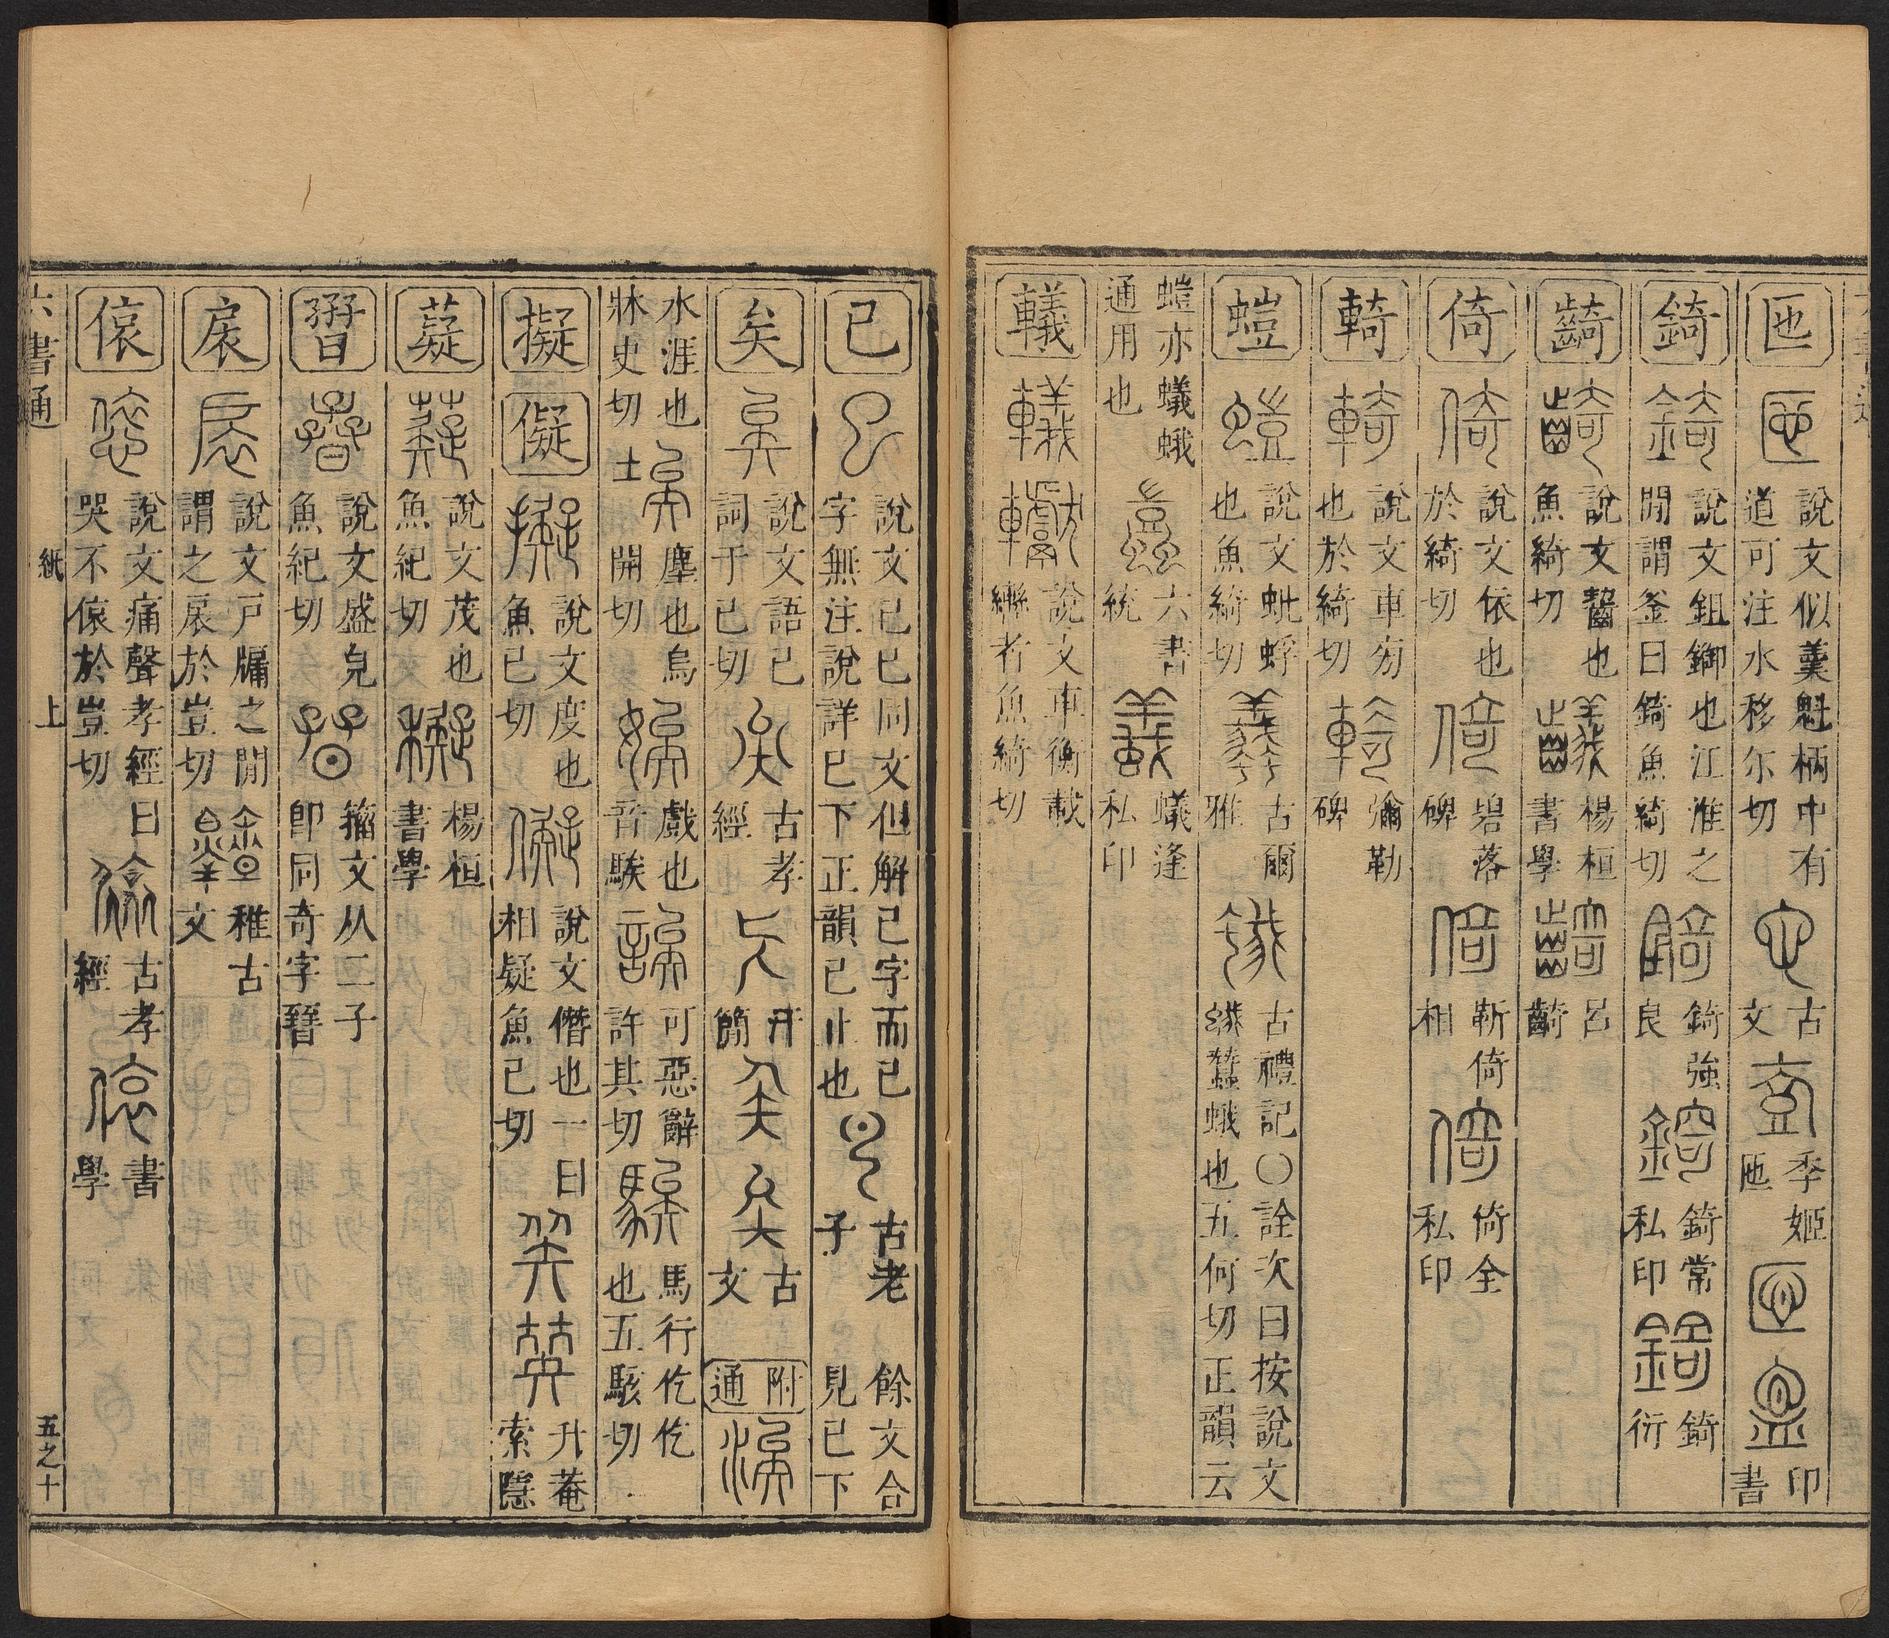 匜 說文似羹魁柄中有道可注水移尒切 古文 季姬匜 印書
錡 說文鉏鋤也江淮之閒謂釜曰錡魚綺切 錡強良 錡常私印 錡衍
齮 說文齧也魚綺切 楊桓書學 呂齮
倚 說文依也於綺切 碧落碑 靳倚相 倚全私印
輢 說文車旁也於綺切 彌勒碑
螘 說文蚍蜉也魚綺切 古爾雅 古禮記〇詮次曰按說文螘蠶蛾也五何切正韻云
螘亦蟻蛾通用也 六書統 蟻逢私印
轙 說文車衡載轡者魚綺切
已 說文已巳同文但解巳字而已字無注說詳巳下正韻已止也 古老子 餘文合見巳下
矣 說文語已詞于已切 古孝經 古文 附通
水涯也牀史切 塵也烏開切 戲也音騃 可惡辭許其切 馬行仡仡也五駭切
擬 儗 說文度也魚已切 說文僭也一曰相疑魚已切 升菴索隱
薿 說文茂也魚紀切 楊桓書學
孴 說文盛皃魚紀切 籀文从二子卽同奇字簪
扆 說文戶牖之閒謂之扆於豈切 稚古文
偯 說文痛聲孝經曰哭不偯於豈切 古孝經 書學
六書通 紙 上 五之十